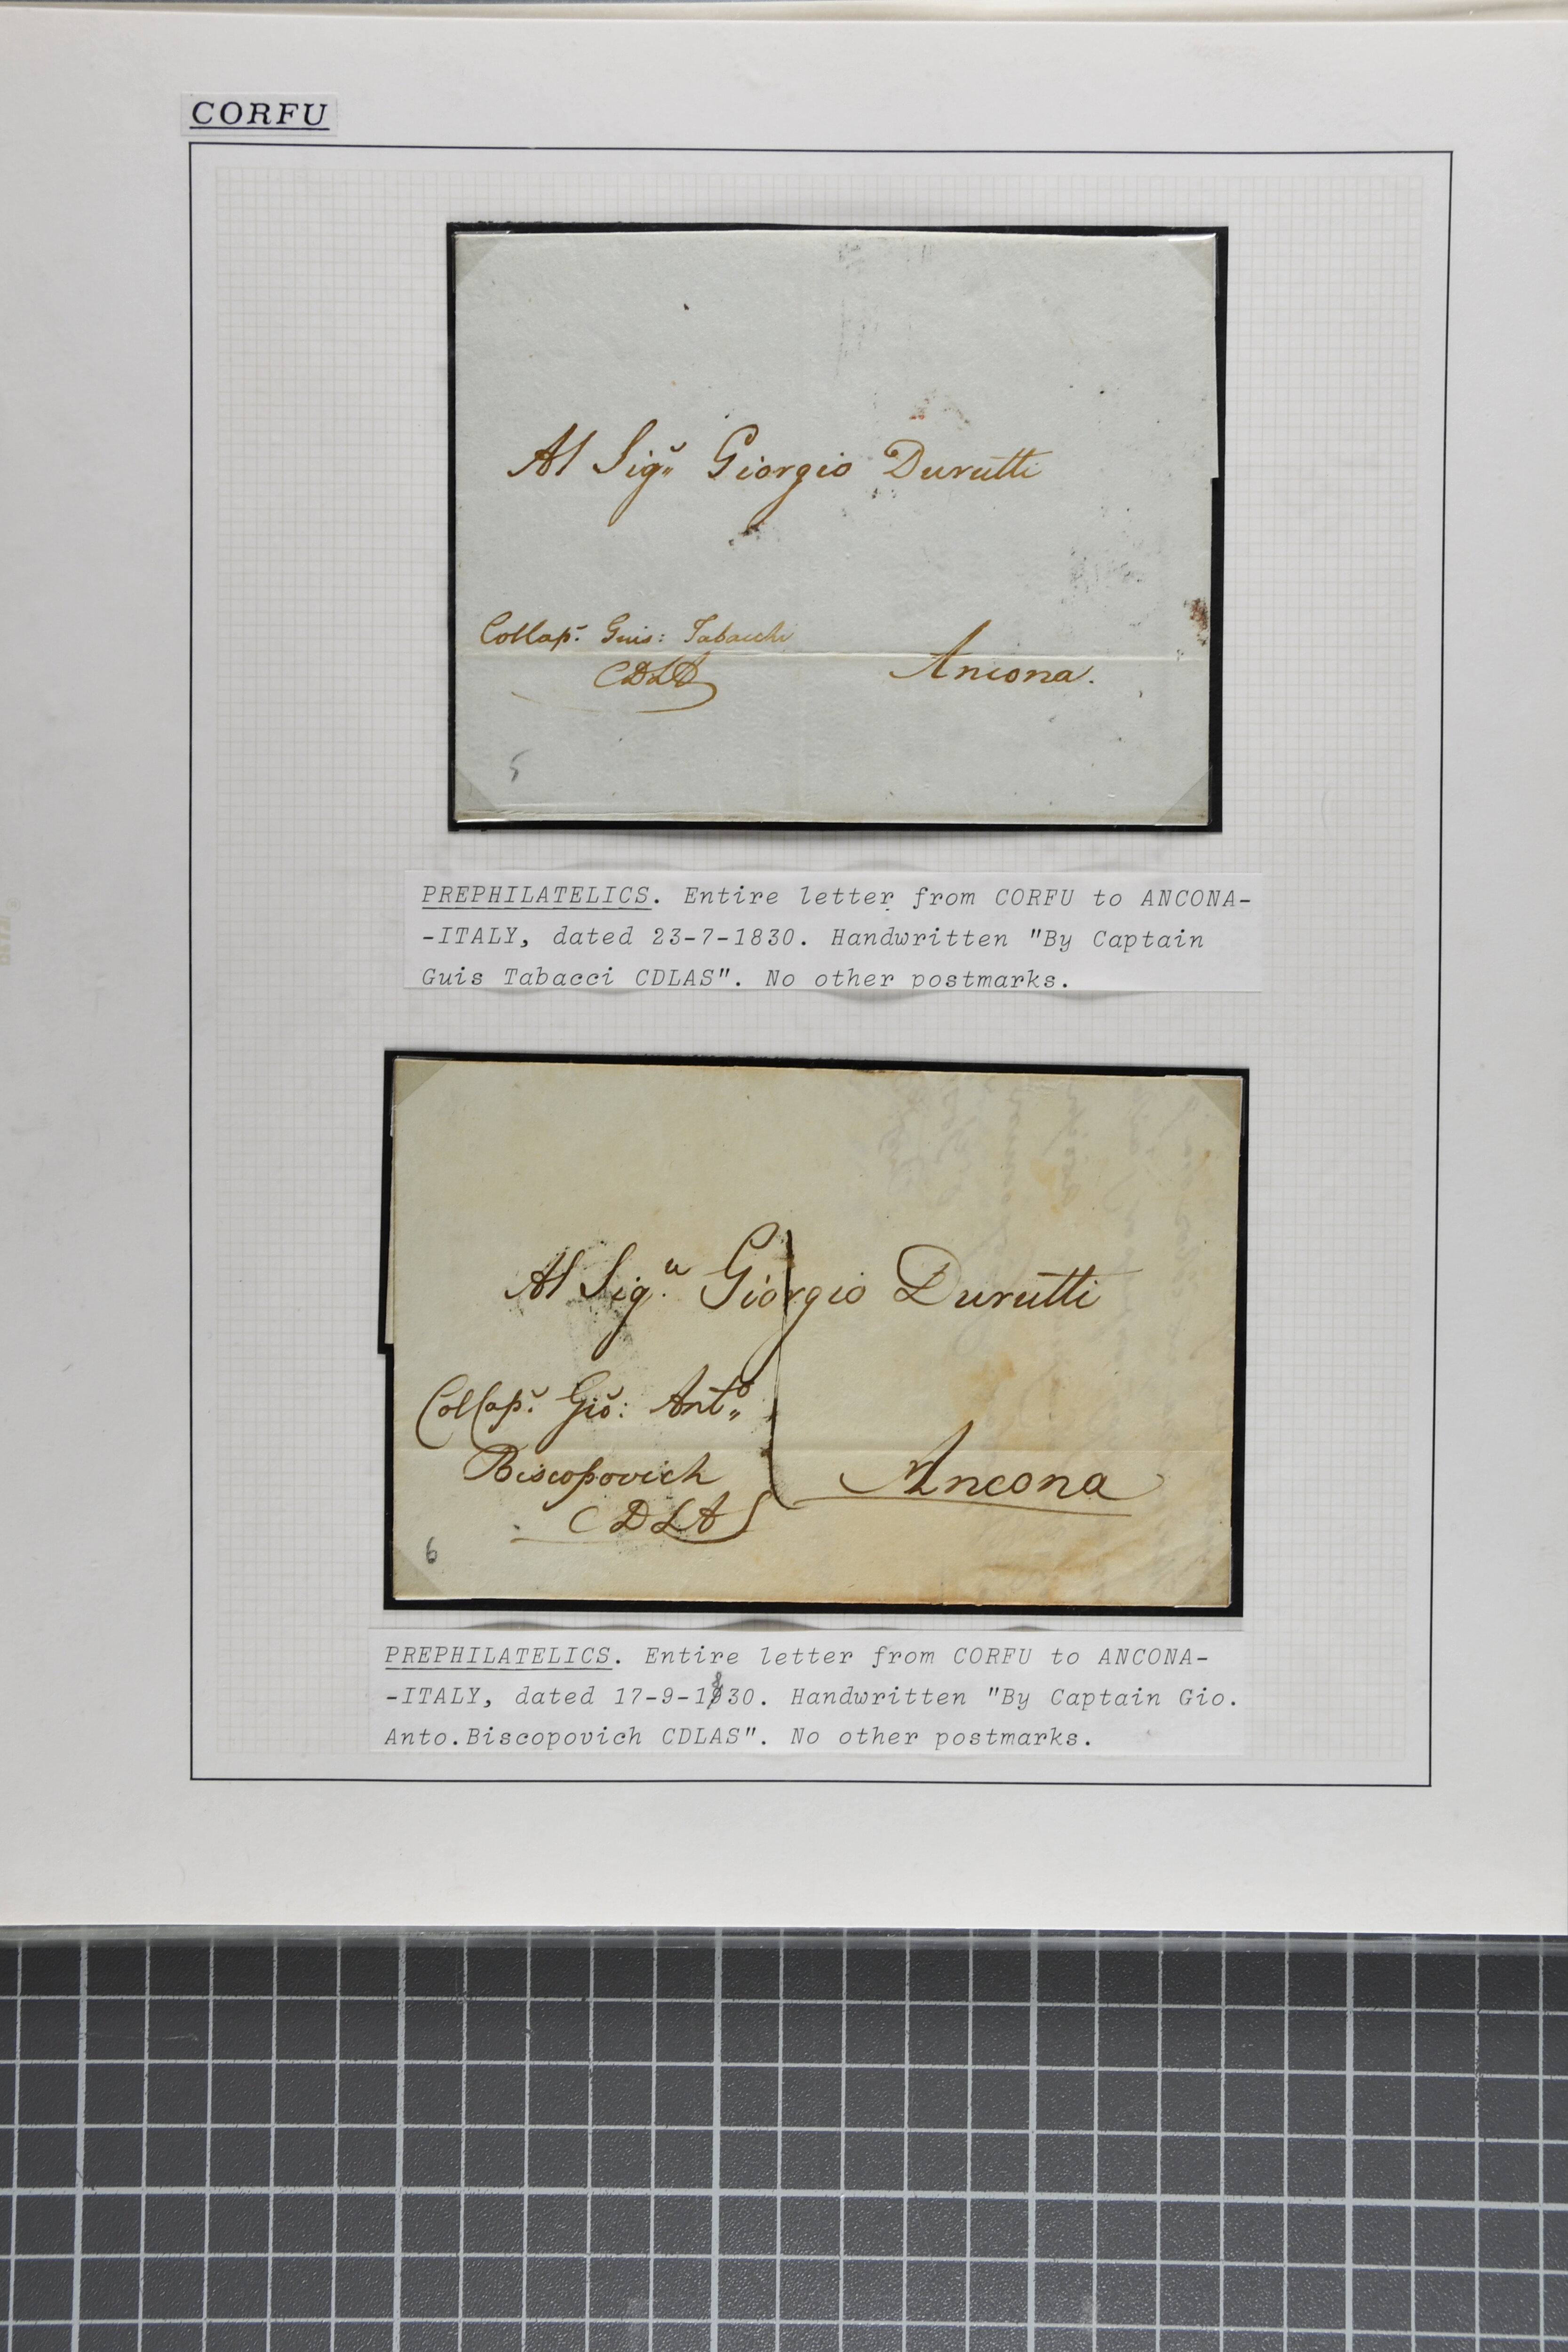 CORFU
Al Sigr Giorgio Durutti
Col Cap: Guis: Tabacchi
CDLA
Ancona.
5
PREPHILATELICS. Entire letter from CORFU to ANCONA-
-ITALY, dated 23-7-1830. Handwritten "By Captain
Guis Tabacci CDLAS". No other postmarks.
Al Sig.r Giorgio Durutti
Col Cap: Gio: Anto
Biscopovich
CDLAS
Ancona
6
PREPHILATELICS. Entire letter from CORFU to ANCONA-
-ITALY, dated 17-9-1830. Handwritten "By Captain Gio.
Anto.Biscopovich CDLAS". No other postmarks.